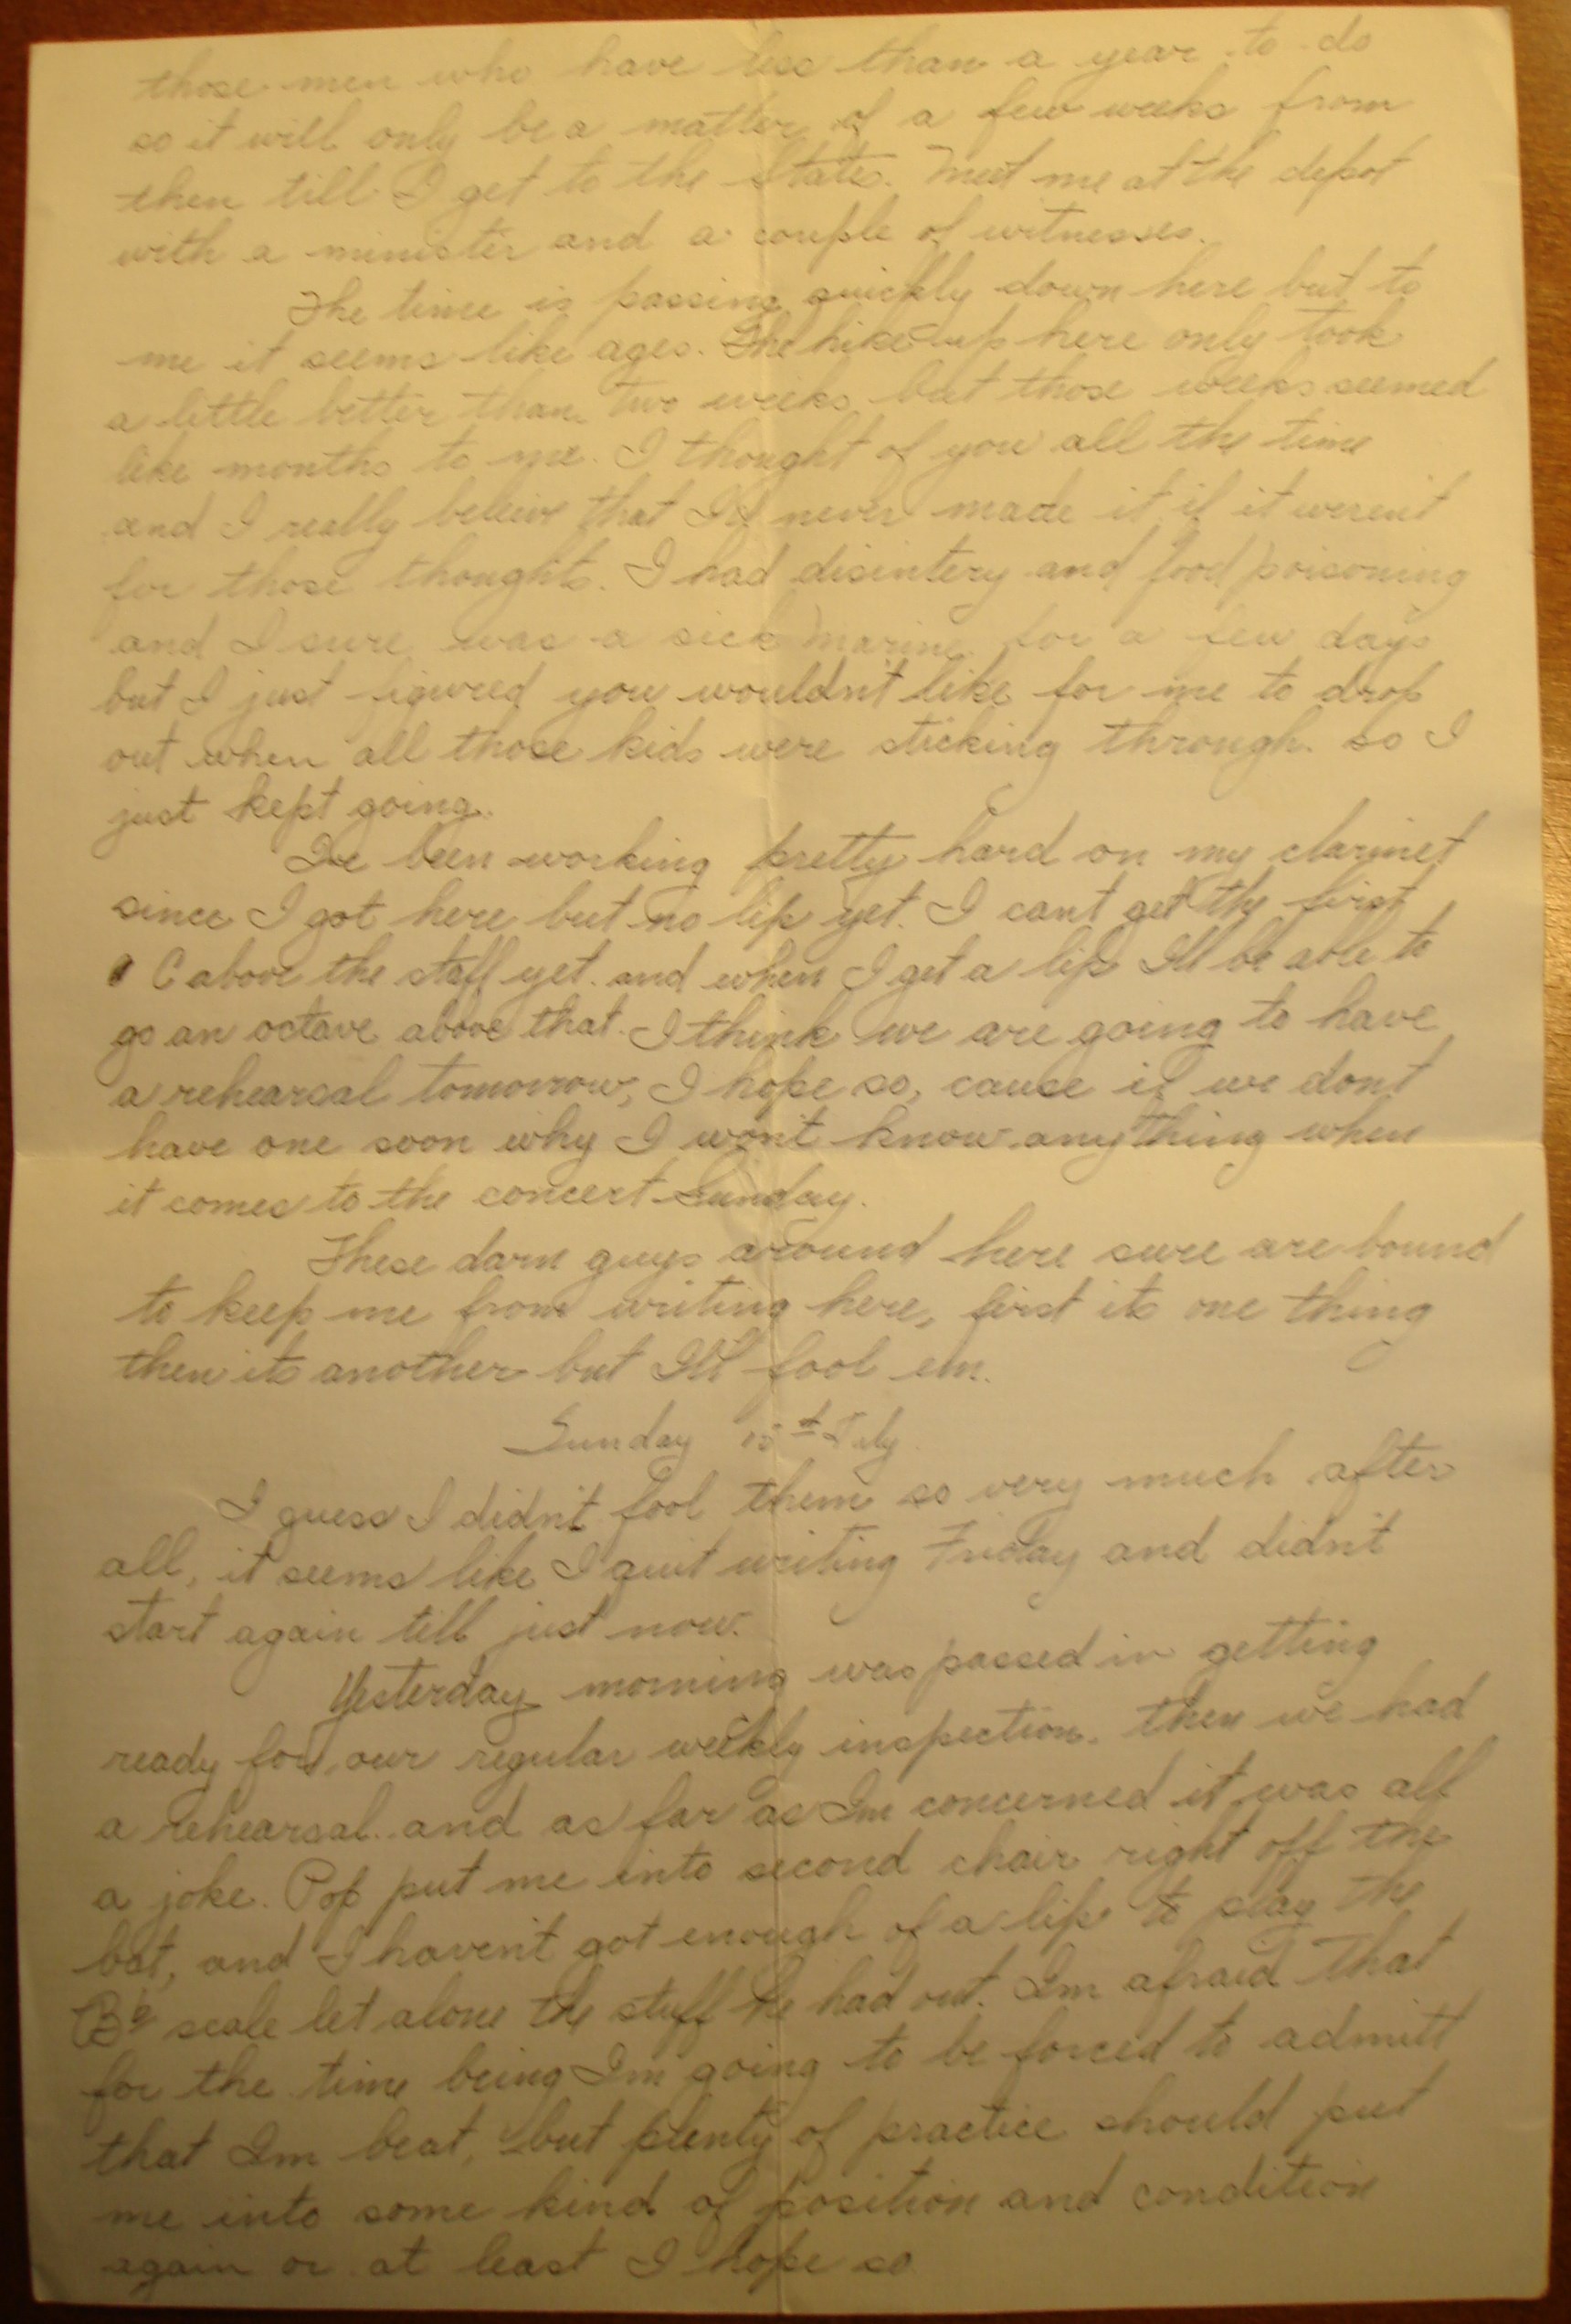 those men who have less than a year to do
so it will only be a matter of a few weeks from
then till I get to the States. Meet me at the depot
with a minister and a couple of witnesses.
The time is passing quickly down here but to
me it seems like ages. The hike up here only took
a little better than two weeks but those weeks seemed
like months to me. I thought of you all the time
and I really beleive that I'd never made it if it weren't
for those thoughts. I had disintery and food poisoning
and I sure was a sick Marine for a few days
but I just figured you wouldn't like for me to drop
out when all those kids were sticking through. so I
just kept going.
I've been working pretty hard on my clarinet
since I got here but no lip yet. I cant get the first
C above the staff yet. and when I get a lip I'll be able to
go an octave above that. I think we are going to have
a rehearsal tomorrow, I hope so, cause if we dont
have one soon why I won't know anything when
it comes to the concert Sunday.
These darn guys around here sure are bound
to keep me from writing here, first its one thing
then its another but I'll fool em.
Sunday 15th July
I guess I didn't fool them so very much after
all, it seems like I quit writing Friday and didn't
start again till just now.
Yesterday morning was passed in getting
ready for our regular weekly inspection. then we had
a rehearsal. and as far as Im concerned it was all
a joke. Pop put me into second chair right off the
bat, and I haven't got enough of a lip to play the
B♭ scale let alone the stuff he had out. Im afraid that
for the time being Im going to be forced to admitt
that Im beat, but plenty of practice should put
me into some kind of position and condition
again or at least I hope so